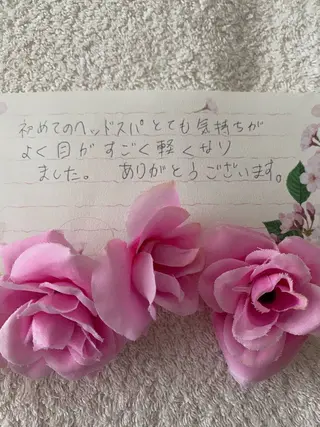 初めてのヘッドスパとても気持ちが
よく目がすごく軽くなり
ました。 ありがとうございます。